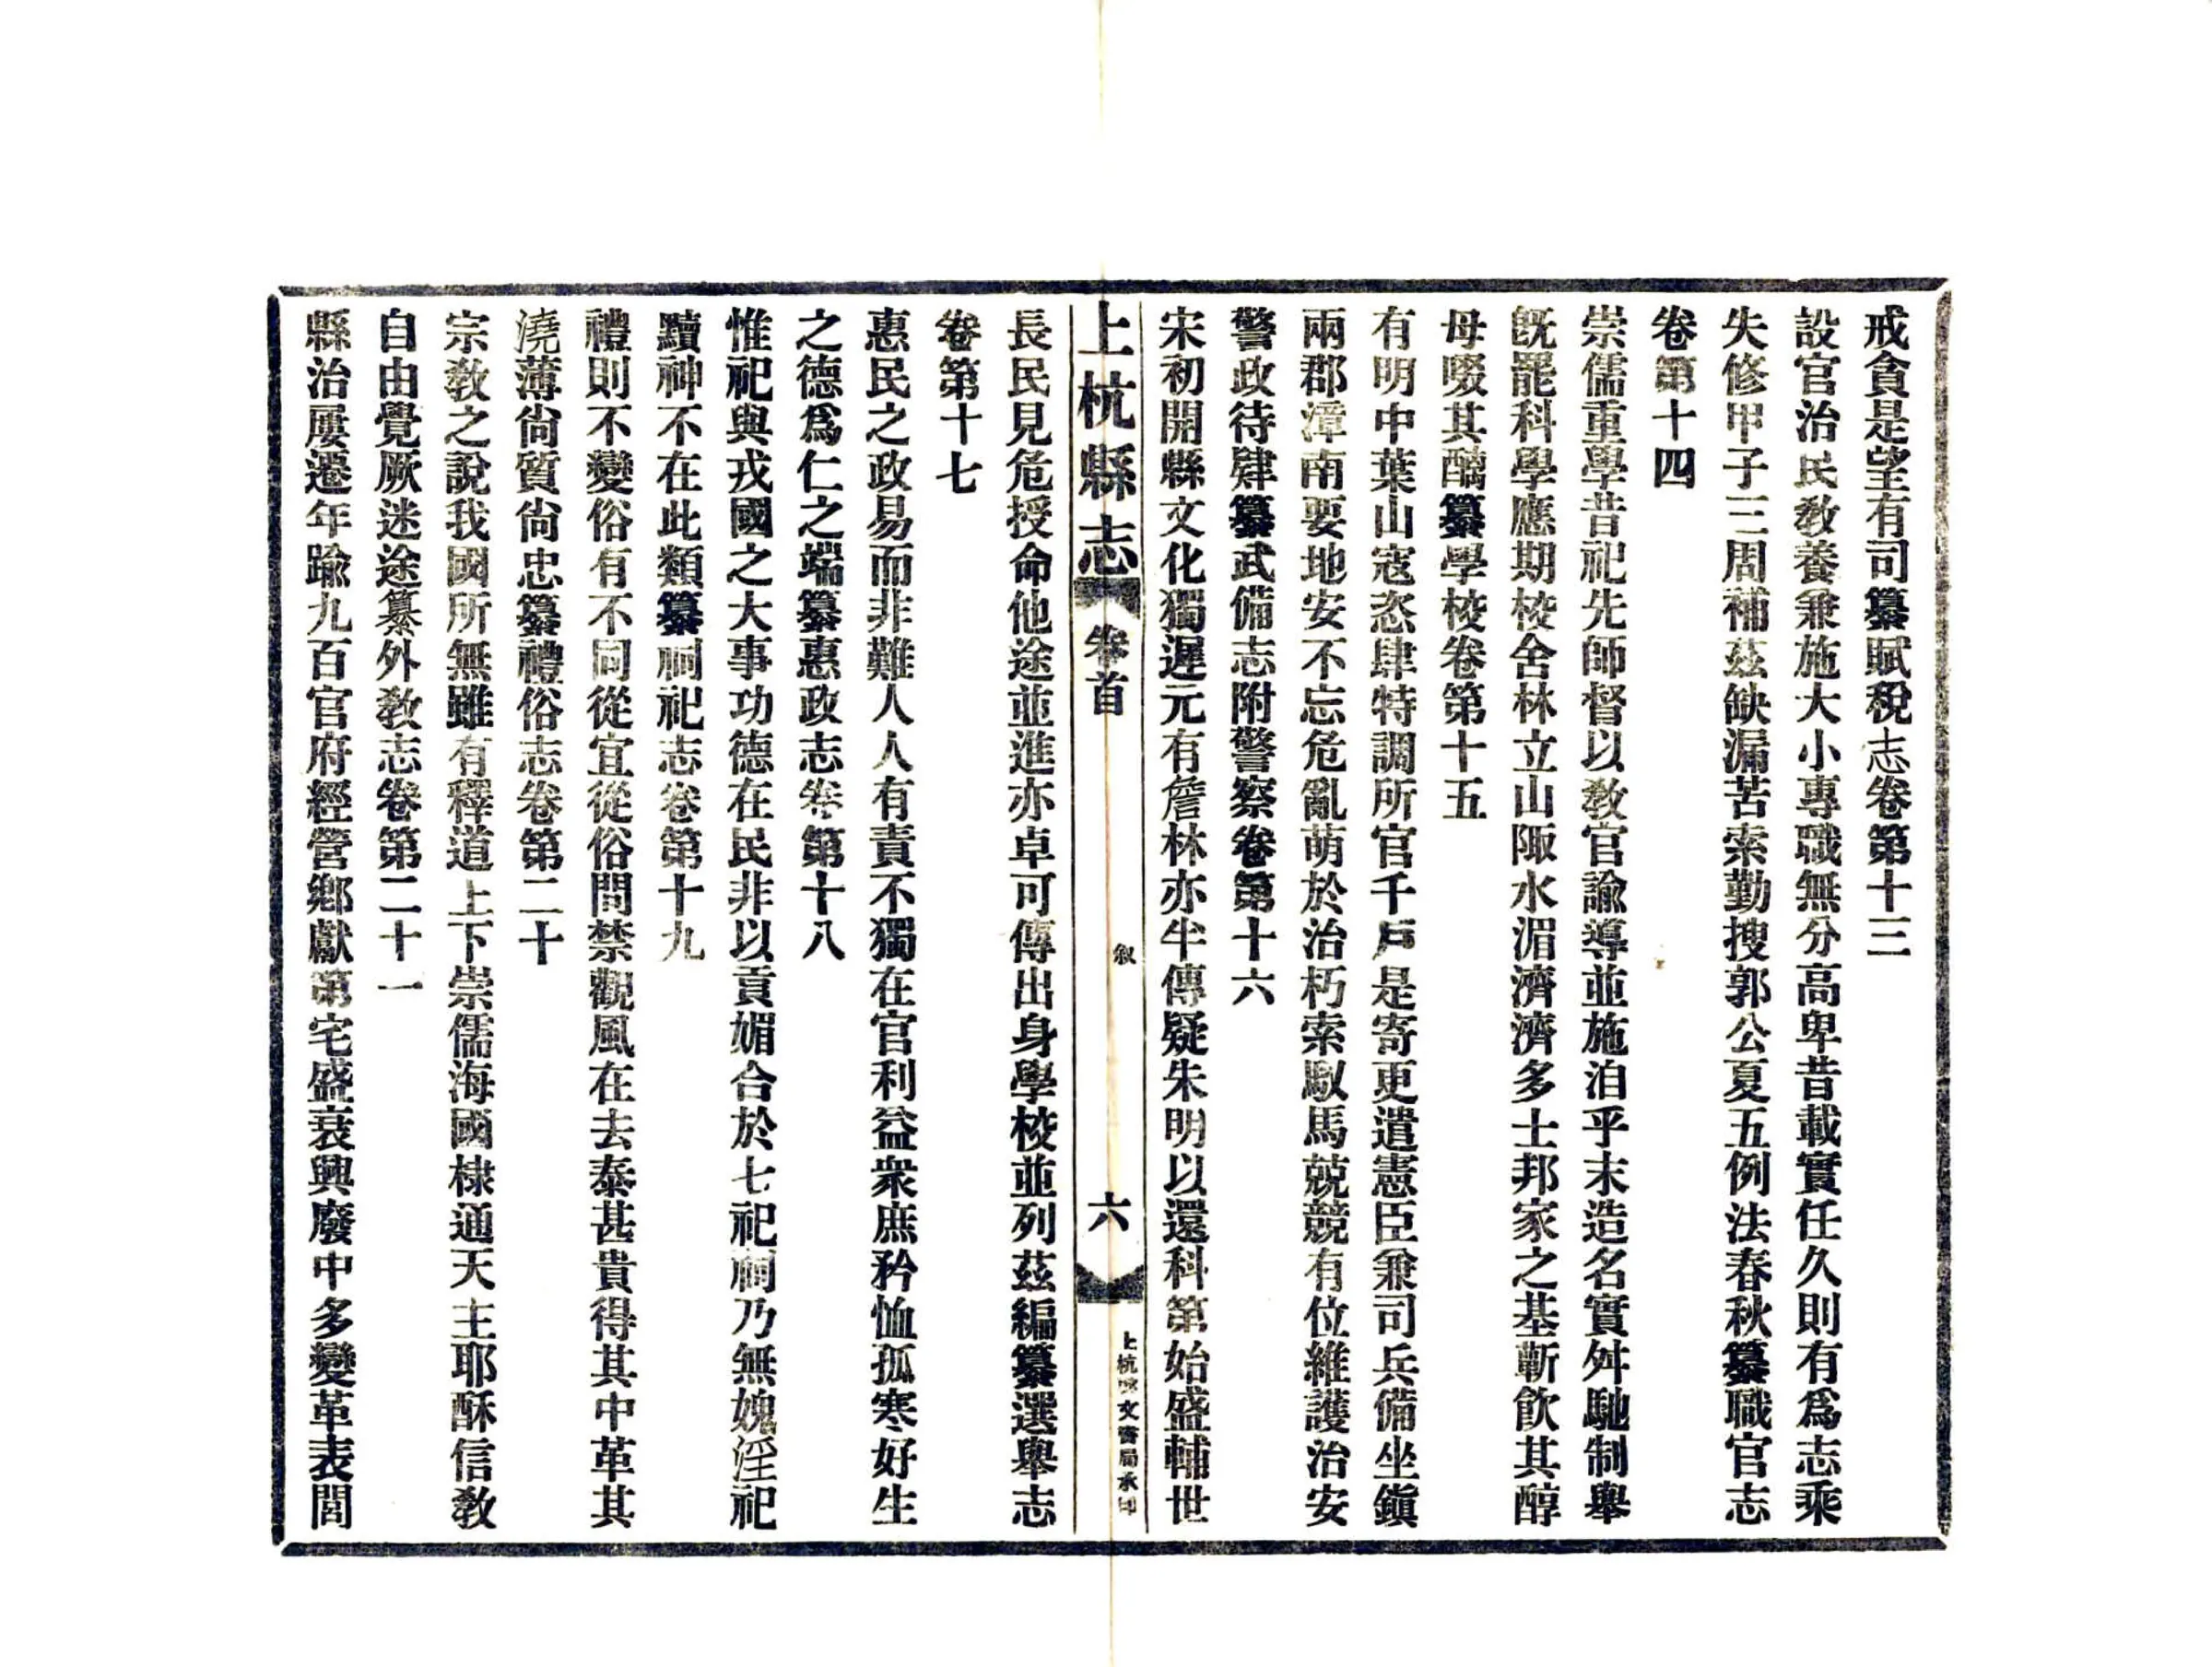 戒貪是望有司纂賦稅志卷第十三
設官治民敎養兼施大小專職無分高卑昔載實任久則有爲志乘
失修甲子三周補茲缺漏苦索勤搜郭公夏五例法春秋纂職官志
卷第十四
崇儒重學昔祀先師督以敎官諭導並施洎乎末造名實舛馳制舉
旣罷科學應期校舍林立山陬水湄濟濟多士邦家之基蘄飮其醇
毋啜其醨纂學校卷第十五
有明中葉山寇恣肆特調所官千戶是寄更遣憲臣兼司兵備坐鎭
兩郡漳南要地安不忘危亂萌於治朽索馭馬兢兢有位維護治安
警政待肄纂武備志附警察卷第十六
宋初開縣文化獨遲元有詹林亦半傳疑朱明以還科第始盛輔世
上杭縣志
卷首
敘
六
上杭 文書局承印
長民見危授命他途並進亦卓可傳出身學校並列茲編纂選舉志
卷第十七
惠民之政易而非難人人有責不獨在官利益衆庶矜恤孤寒好生
之德爲仁之端纂惠政志卷第十八
惟祀與戎國之大事功德在民非以貢媚合於七祀祠乃無媿淫祀
黷神不在此類纂祠祀志卷第十九
禮則不變俗有不同從宜從俗問禁觀風在去泰甚貴得其中革其
澆薄尙質尙忠纂禮俗志卷第二十
宗敎之說我國所無雖有釋道上下崇儒海國棣通天主耶酥信敎
自由覺厥迷途纂外敎志卷第二十一
縣治屢遷年踰九百官府經營鄉獻第宅盛衰興廢中多變革表閭